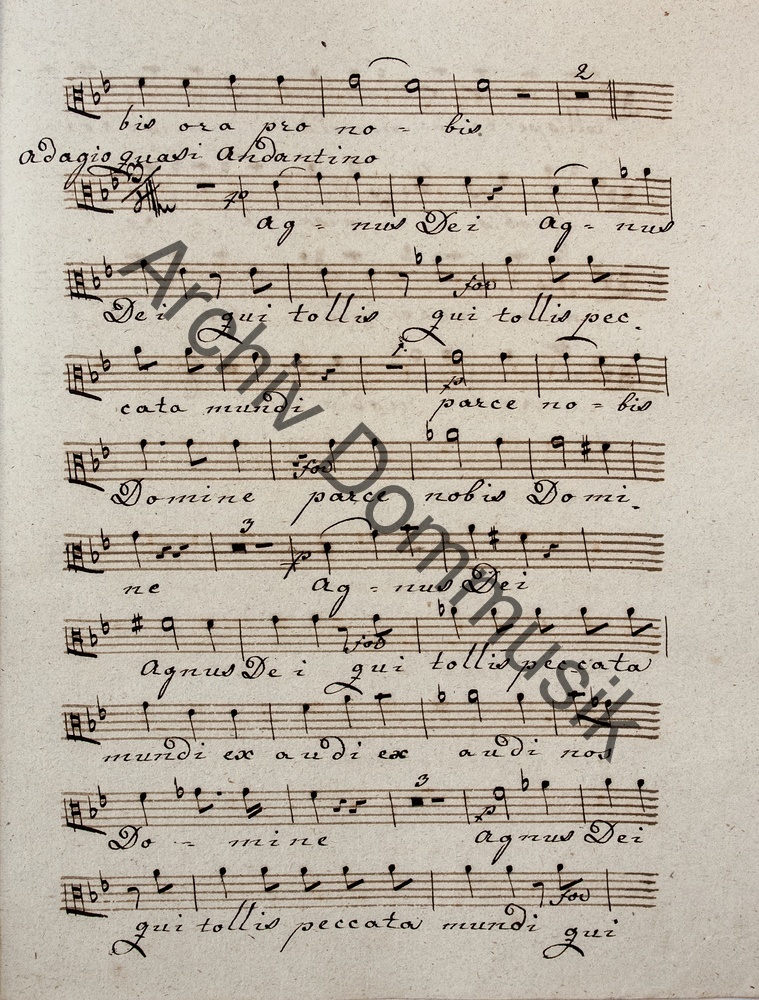 2
bis ora pro no - bis
adagio quasi Andantino
p
ag - nus Dei ag - nus
for
Dei qui tollis qui tollis pec.
cata mundi parce no - bis
p
for
Domine parce nobis Domi.
3
p
ne ag - nus Dei
for
agnus Dei qui tollis peccata
mundi ex audi ex audi nos
3
p
Do - mine agnus Dei
for
qui tollis peccata mundi qui
Archiv Dommusik